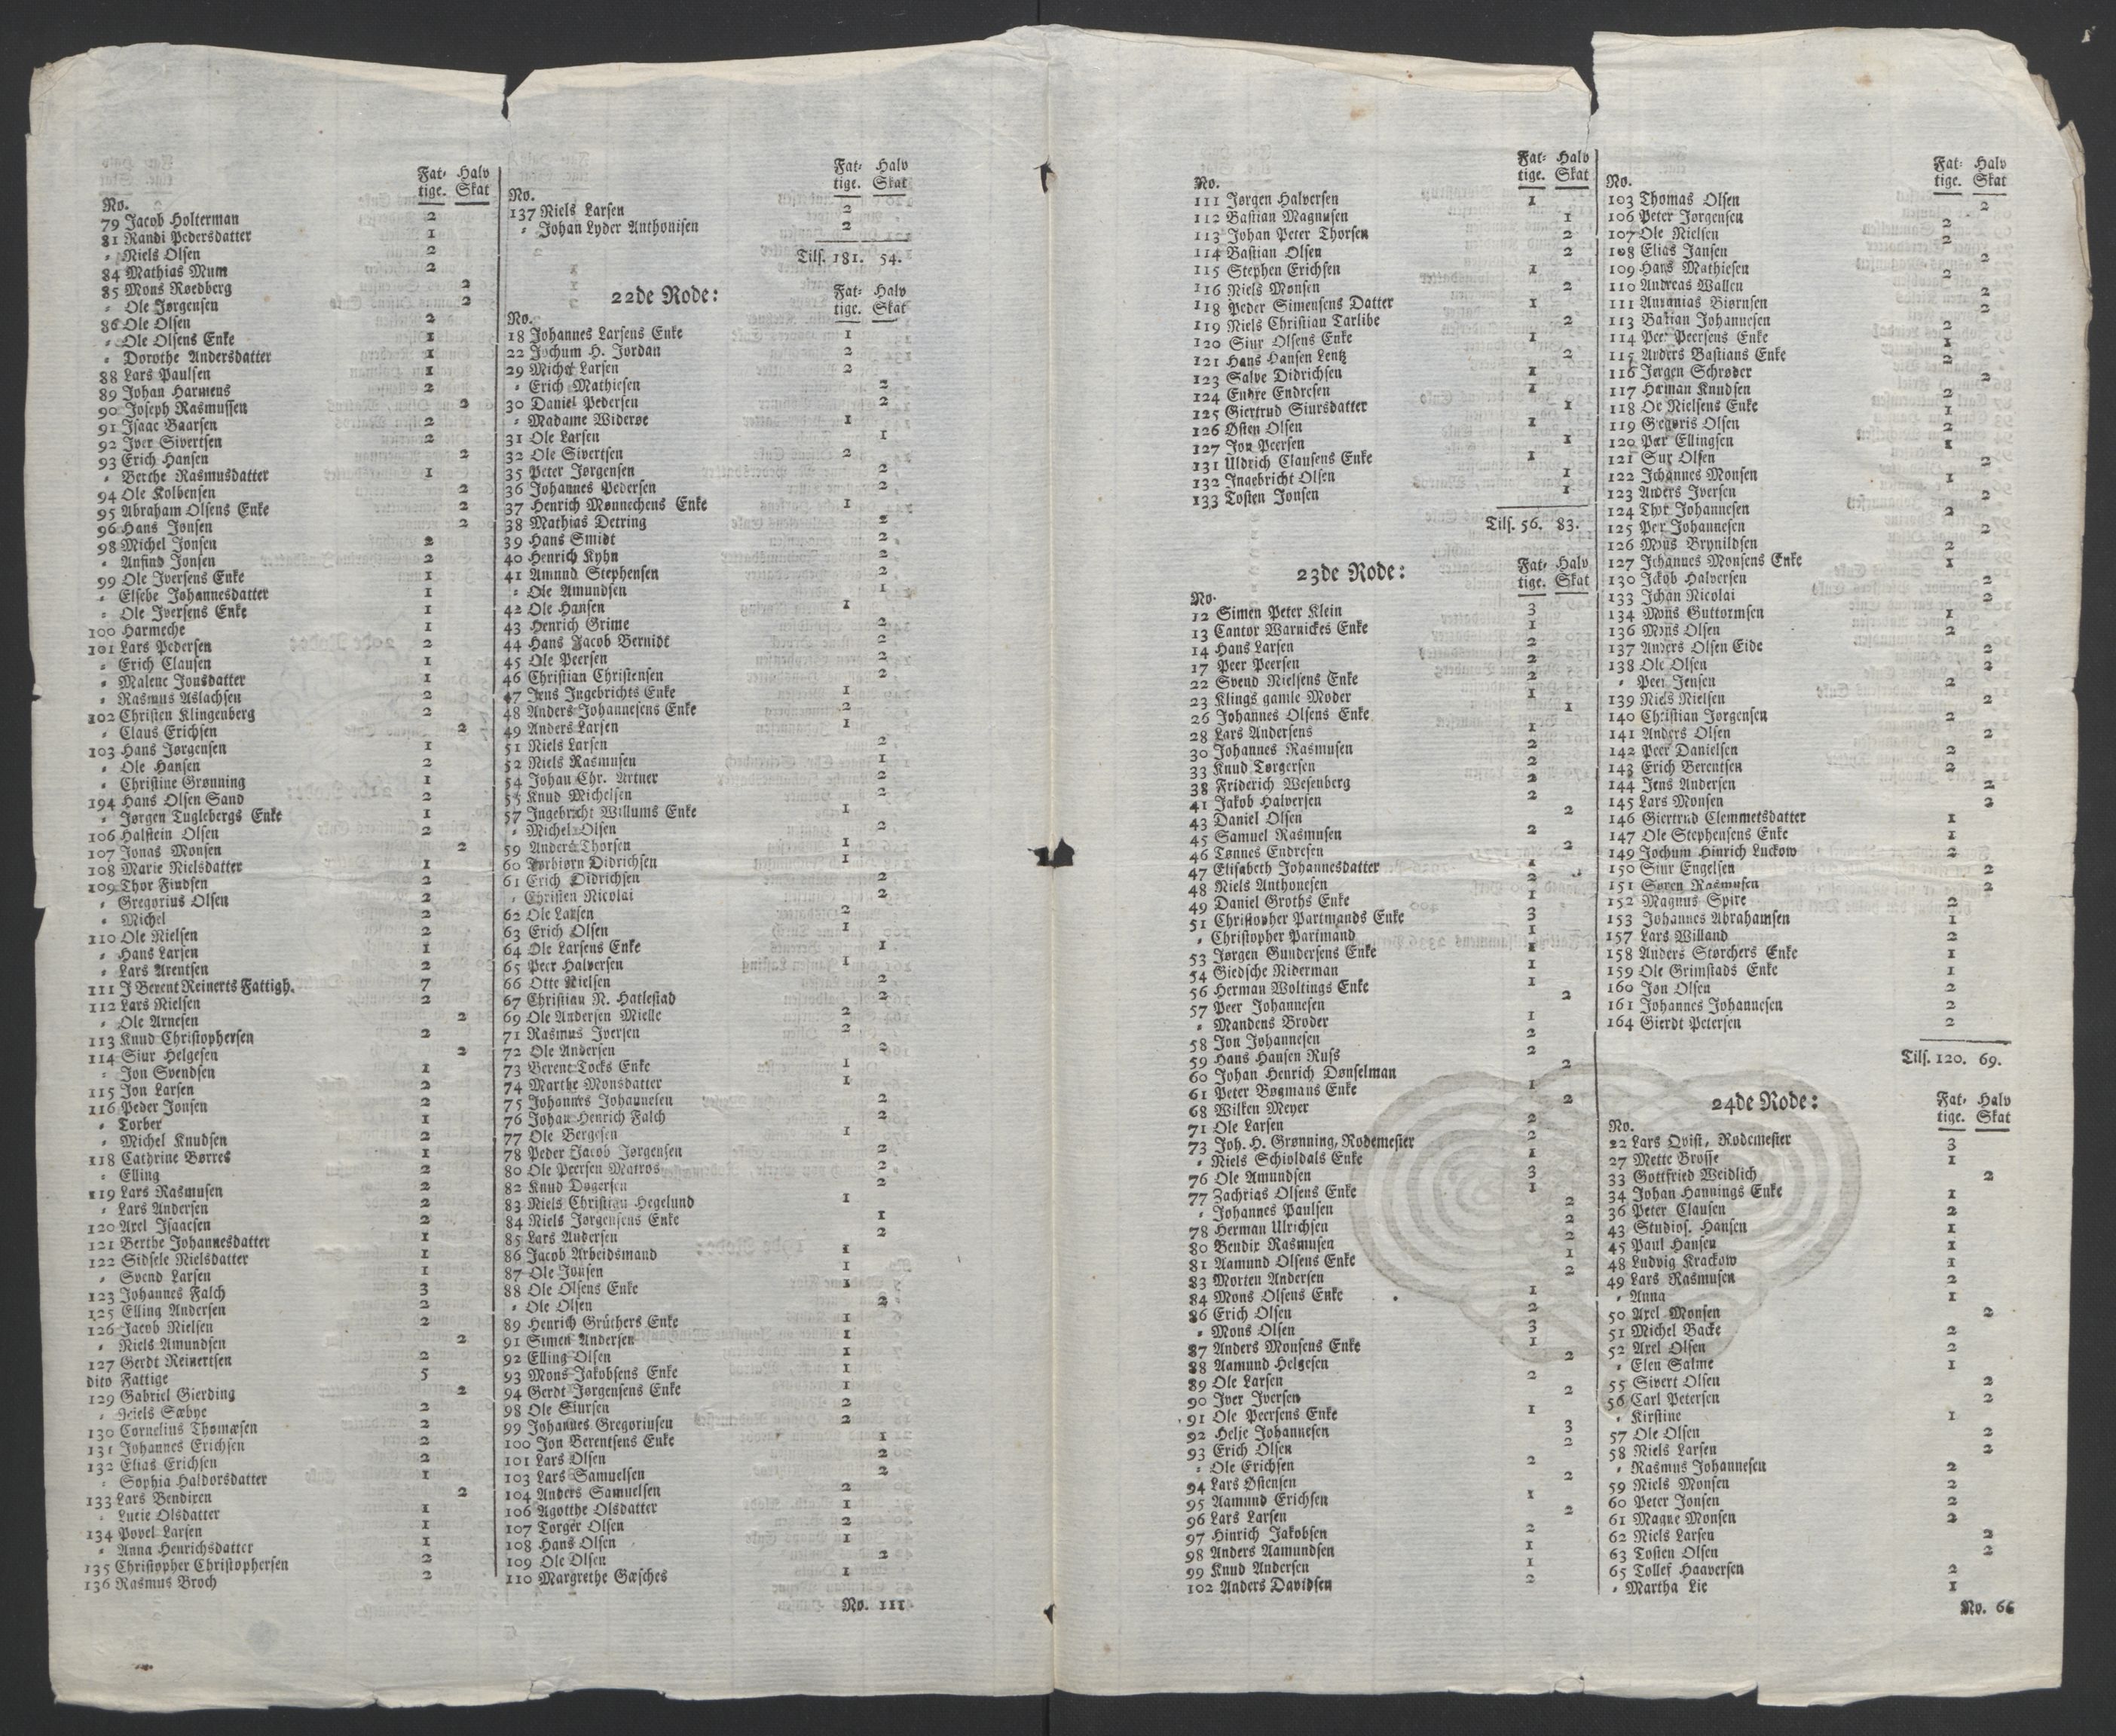 Fat- Halv
tige. Skat
No.
79 Jacob Holterman 2
81 Randi Pedersdatter 1
" Niels Olsen 2
84 Mathias Mum 2
85 Mons Roedberg 2
" Ole Jørgensen 2
86 Ole Olsen 2
" Ole Olsens Enke 1
" Dorothe Andersdatter 1
88 Lars Paulsen 1
89 Johan Harmens 2
90 Joseph Rasmussen 2
91 Isaac Baarsen 2
92 Iver Sivertsen 2
93 Erich Hansen 2
" Berthe Rasmusdatter 1
94 Ole Kolbensen 2
95 Abraham Olsens Enke 2
96 Hans Jonsen 2
98 Michel Jonsen 2
" Anfind Jonsen 2
99 Ole Iversens Enke 1
" Elsebe Johannesdatter 1
" Ole Iversens Enke 1
100 Harmeche 1
101 Lars Pedersen 2
" Erich Clausen 1
" Malene Jonsdatter 1
" Rasmus Aslachsen 2
102 Christen Klingenberg 2
" Claus Erichsen 2
103 Hans Jørgensen 1
" Ole Hansen 2
" Christine Grønning 1
194 Hans Olsen Sand 2
" Jørgen Tuglebergs Enke 1
106 Halstein Olsen 2
107 Jonas Monsen 2
108 Marie Nielsdatter 1
109 Thor Findsen 2
" Gregorius Olsen 2
" Michel 2
110 Ole Nielsen 2
" Hans Larsen 1
" Lars Arentsen 2
111 J Berent Reinerts Fattigh. 7
112 Lars Nielsen 2
" Ole Arnesen 2
113 Knud Christophersen 2
114 Siur Helgesen 2
" Jon Svendsen 1
115 Jon Larsen 2
116 Peder Jonsen 2
" Torber 1
" Michel Knudsen 2
118 Cathrine Børres 1
" Elling 2
119 Lars Rasmusen 2
" Lars Andersen 2
120 Axel Isaacsen 2
121 Berthe Johannesdatter 1
122 Sidsele Nielsdatter 1
" Svend Larsen 1
123 Johannes Falch 3
125 Elling Andersen 2
126 Jacob Nielsen 2
" Niels Amundsen 2
127 Gerdt Reinertsen 2
dito Fattige 5
129 Gabriel Gierding 2
" Niels Sæbye 2
130 Cornelius Thomæsen 2
131 Johannes Erichsen 2
132 Elias Erichsen 2
" Sophia Haldorsdatter 1
133 Lars Bendixen 2
" Lucie Olsdatter 1
134 Povel Larsen 1
" Anna Henrichsdatter 1
135 Christopher Christophersen 2
136 Rasmus Broch 2
Fat- Halv
tige. Skat
No.
137 Niels Larsen 2
" Johan Lyder Anthonisen 2
Tils. 181. 54.
22de Rode:
Fat- Halv
tige. Skat
No.
18 Johannes Larsens Enke 1
22 Jochum H. Jordan 2
29 Michel Larsen 2
" Erich Mathiesen 2
30 Daniel Pedersen 2
" Madame Widerøe 1
31 Ole Larsen 1
32 Ole Sivertsen 2
35 Peter Jørgensen 2
36 Johannes Pedersen 2
37 Henrich Mønnechens Enke 1
38 Mathias Detring 2
39 Hans Smidt 2
40 Henrich Kyhn 2
41 Amund Stephensen 2
" Ole Amundsen 1
42 Ole Hansen 1
43 Henrich Grime 2
44 Hans Jacob Bernidt 2
45 Ole Peersen 2
46 Christian Christensen 2
47 Jens Ingebrichts Enke 1
48 Anders Johannesens Enke 2
49 Anders Larsen 1
51 Niels Larsen 2
52 Niels Rasmusen 1
54 Johan Chr. Artner 2
55 Knud Michelsen 2
57 Ingebricht Willums Enke 1
" Michel Olsen 2
59 Anders Thorsen 1
60 Torbiørn Didrichsen 1
61 Erich Didrichsen 2
" Christen Nicolai 2
62 Ole Larsen 2
63 Erich Olsen 1
64 Ole Larsens Enke 1
65 Peer Halversen 1
66 Otte Nielsen 2
67 Christian N. Hatlestad 2
69 Ole Andersen Mielle 2
71 Rasmus Iversen 2
72 Ole Andersen 2
73 Berent Tocks Enke 1
74 Marthe Monsdatter 1
75 Johannes Johannesen 2
76 Johan Henrich Falch 2
77 Ole Bergesen 1
78 Peder Jacob Jørgensen 2
80 Ole Peersen Matros 2
82 Knud Dogersen 2
83 Niels Christian Hegelund 1
84 Niels Jørgensens Enke 1
85 Lars Andersen 2
86 Jacob Arbeidsmand 1
87 Ole Jonsen 1
88 Ole Olsens Enke 1
" Ole Olsen 2
89 Henrich Grüthers Enke 1
91 Simen Andersen 1
92 Elling Olsen 1
93 Mons Jakobsens Enke 1
94 Gerdt Jørgensens Enke 1
98 Ole Siursen 2
99 Johannes Gregoriusen 2
100 Jon Berentsens Enke 1
101 Lars Olsen 2
103 Lars Samuelsen 2
104 Anders Samuelsen 2
106 Agotthe Olsdatter 1
107 Torger Olsen 2
108 Hans Olsen 1
109 Ole Olsen 2
110 Margrethe Gæsches 1
No. 111
Fat- Halv
tige. Skat
No.
111 Jørgen Halversen 1
112 Bastian Magnusen 1
113 Johan Peter Thorsen 2
114 Bastian Olsen 2
115 Stephen Erichsen 1
116 Niels Monsen 2
118 Peder Simensens Datter 1
119 Niels Christian Tarlibe 2
120 Siur Olsens Enke 1
121 Hans Hansen Lentz 2
123 Salve Didrichsen 1
124 Endre Endresen 1
125 Giertrud Siursdatter 1
126 Østen Olsen 1
127 Jon Peersen 1
131 Uldrich Clausens Enke 1
132 Ingebricht Olsen 1
133 Tosten Jonsen 1
Tils. 56. 83.
23de Rode:
Fat- Halv
tige. Skat
No.
12 Simen Peter Klein 3
13 Cantor Warnickes Enke 1
14 Hans Larsen 2
17 Peer Peersen 2
22 Svend Nielsens Enke 2
23 Klings gamle Moder 1
26 Johannes Olsens Enke 1
28 Lars Andersens 1
30 Johannes Rasmusen 2
33 Knud Torgersen 2
38 Friderich Wesenberg 2
41 Jakob Halversen 2
43 Daniel Olsen 2
45 Samuel Rasmusen 2
46 Tønnes Endresen 2
47 Elisabeth Johannesdatter 1
48 Niels Anthonesen 2
49 Daniel Groths Enke 1
51 Christopher Partmands Enke 3
" Christopher Partmand 1
53 Jørgen Gundersens Enke 1
54 Giedsche Niderman 1
56 Herman Woltings Enke 1
57 Peer Johannesen 2
" Mandens Broder 1
58 Jon Johannesen 2
59 Hans Hansen Russ 2
60 Johan Henrich Dønselman 2
61 Peter Bøgmans Enke 1
68 Wilken Meyer 2
71 Ole Larsen 2
73 Joh. H. Grønning, Rodemester 2
" Niels Schioldals Enke 1
76 Ole Amundsen 3
77 Zachrias Olsens Enke 1
" Johannes Paulsen 2
78 Herman Ulrichsen 2
80 Bendix Rasmusen 2
81 Aamund Olsens Enke 1
83 Morten Andersen 2
84 Mons Olsens Enke 1
86 Erich Olsen 2
" Mons Olsen 3
87 Anders Monsens Enke 1
88 Aamund Helgesen 2
89 Ole Larsen 2
90 Iver Iversen 2
91 Ole Peersens Enke 1
92 Helje Johannesen 3
93 Erich Olsen 2
" Ole Erichsen 2
94 Lars Østensen 2
95 Aamund Erichsen 1
96 Lars Larsen 2
97 Hinrich Jakobsen 2
98 Anders Aamundsen 1
99 Knud Andersen 1
102 Anders Davidsen 2
Fat- Halv
tige. Skat
No.
103 Thomas Olsen 2
106 Peter Jorgensen 2
107 Ole Nielsen 2
108 Elias Jansen 2
109 Hans Mathiesen 2
110 Andreas Wallen 2
111 Ananias Biørnsen 2
113 Bastian Johannesen 2
114 Peer Peersens Enke 1
115 Anders Bastians Enke 2
116 Jørgen Schrøder 2
117 Harman Knudsen 2
118 Ole Nielsens Enke 1
119 Gregoris Olsen 2
120 Peer Ellingsen 1
121 Siur Olsen 2
122 Johannes Monsen 1
123 Anders Iversen 2
124 Thor Johannesen 2
125 Peer Johannesen 2
126 Mons Brynildsen 2
127 Johannes Monsens Enke 1
130 Jakob Halversen 2
133 Johan Nicolai 2
134 Mons Guttormsen 1
136 Mons Olsen 2
137 Anders Olsen Eide 2
138 Ole Olsen 2
" Peer Jensen 2
139 Niels Nielsen 2
140 Christian Jørgensen 2
141 Anders Olsen 2
142 Peer Danielsen 2
143 Erich Berentsen 2
144 Jens Andersen 2
145 Lars Monsen 2
146 Giertrud Clemmetsdatter 1
147 Ole Stephensens Enke 1
149 Jochum Hinrich Luckow 2
150 Siur Engelsen 2
151 Søren Rasmusen 2
152 Magnus Spire 2
153 Johannes Abrahamsen 1
157 Lars Willand 2
158 Anders Størchers Enke 1
159 Ole Grimstads Enke 1
160 Jon Olsen 2
161 Johannes Johannesen 2
164 Gierdt Petersen 2
Tils. 120. 69.
24de Rode:
Fat- Halv
tige. Skat
No.
22 Lars Qvist, Rodemester 3
27 Mette Brosse 1
33 Gottfried Weidlich 2
34 Johan Hannings Enke 1
36 Peter Clausen 2
43 Studios. Hansen 1
45 Paul Hansen 1
48 Ludvig Krackow 1
49 Lars Rasmusen 2
" Anna 1
50 Axel Monsen 2
51 Michel Backe 2
52 Axel Olsen 2
" Elen Salme 1
55 Sivert Olsen 2
56 Carl Petersen 2
" Kirstine 1
57 Ole Olsen 2
58 Niels Larsen 2
" Rasmus Johannesen 2
59 Niels Monsen 2
60 Peter Jonsen 2
61 Magne Monsen 2
62 Niels Larsen 2
63 Tosten Olsen 2
65 Tollef Haaversen 2
" Martha Lie 1
No. 66